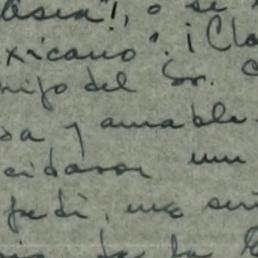 asea"!, o se
xicano". ¡Cla
hijo del Sr. C
sa y amable.
cidaron un
pedí, me